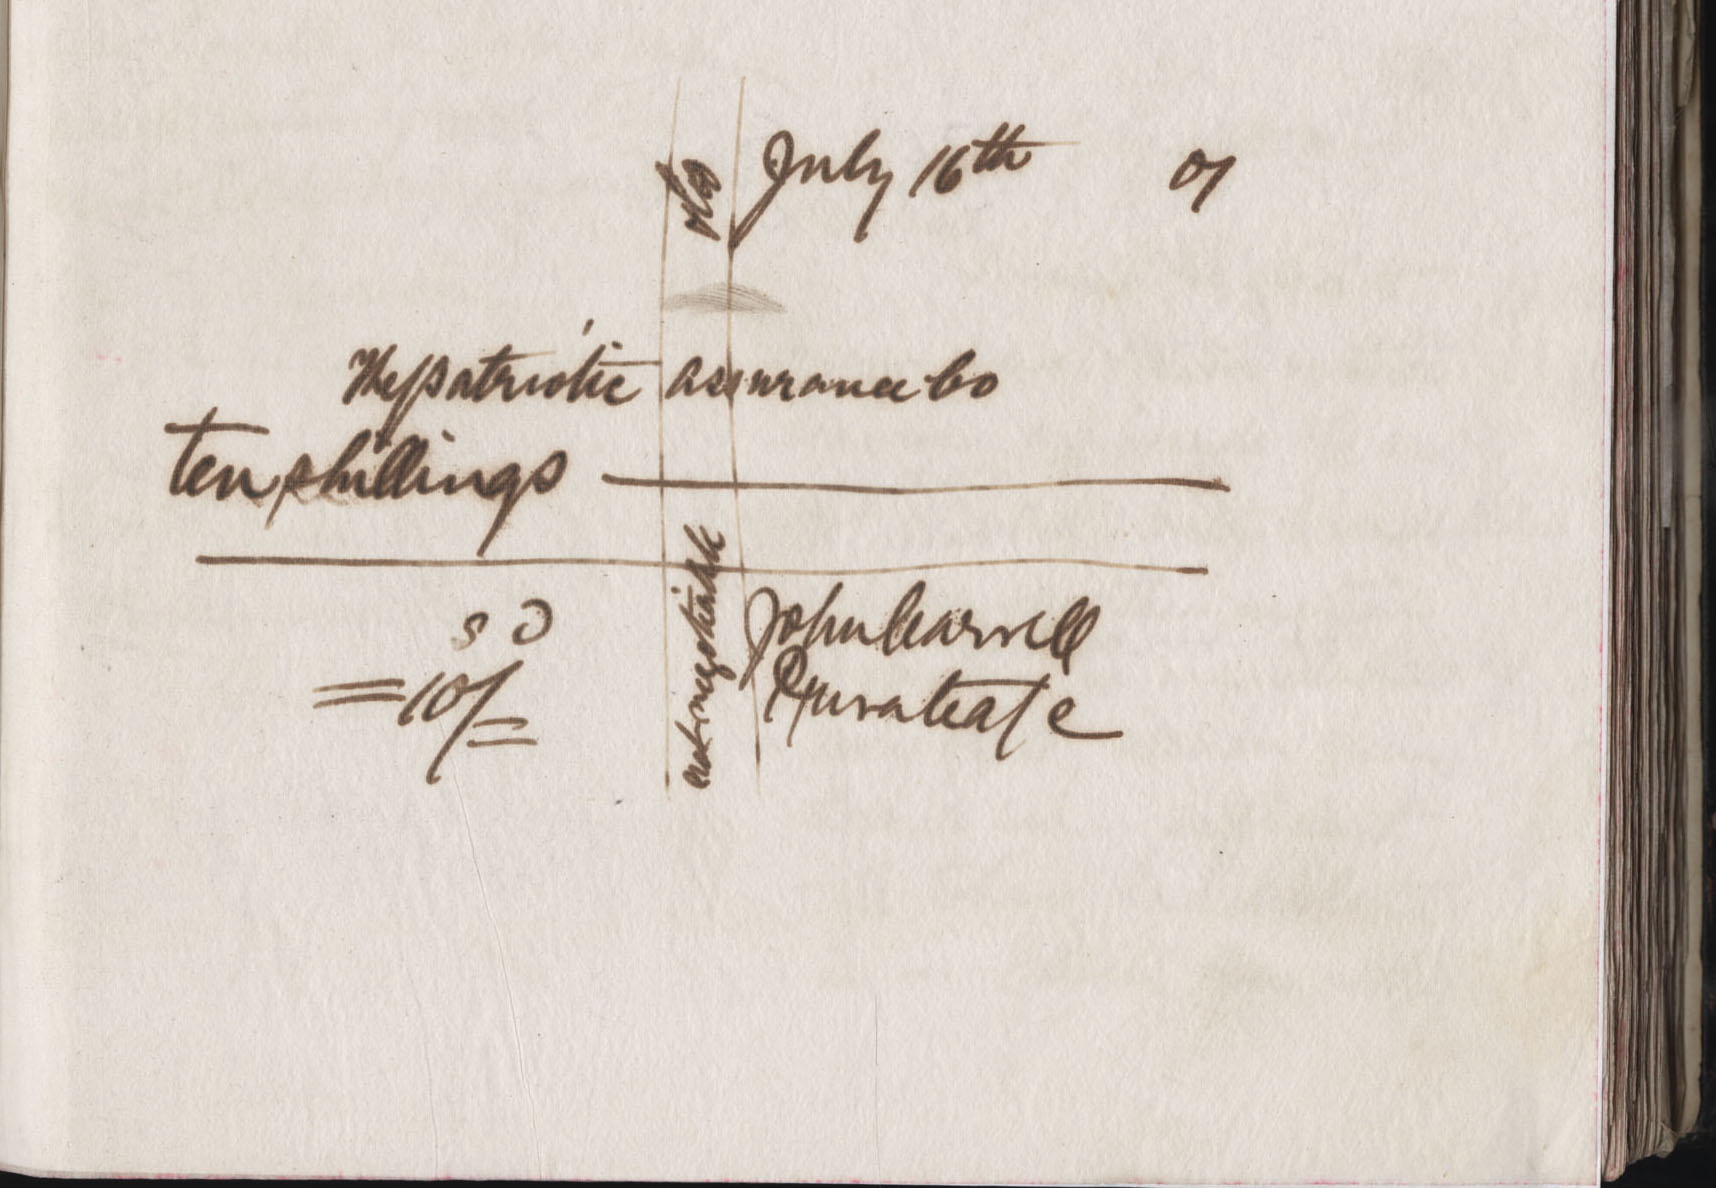 July 16th 01
The patriotic assurance Co
ten shillings
S D
=10/=
John Carroll
Private a/c
& Co
not negotiable